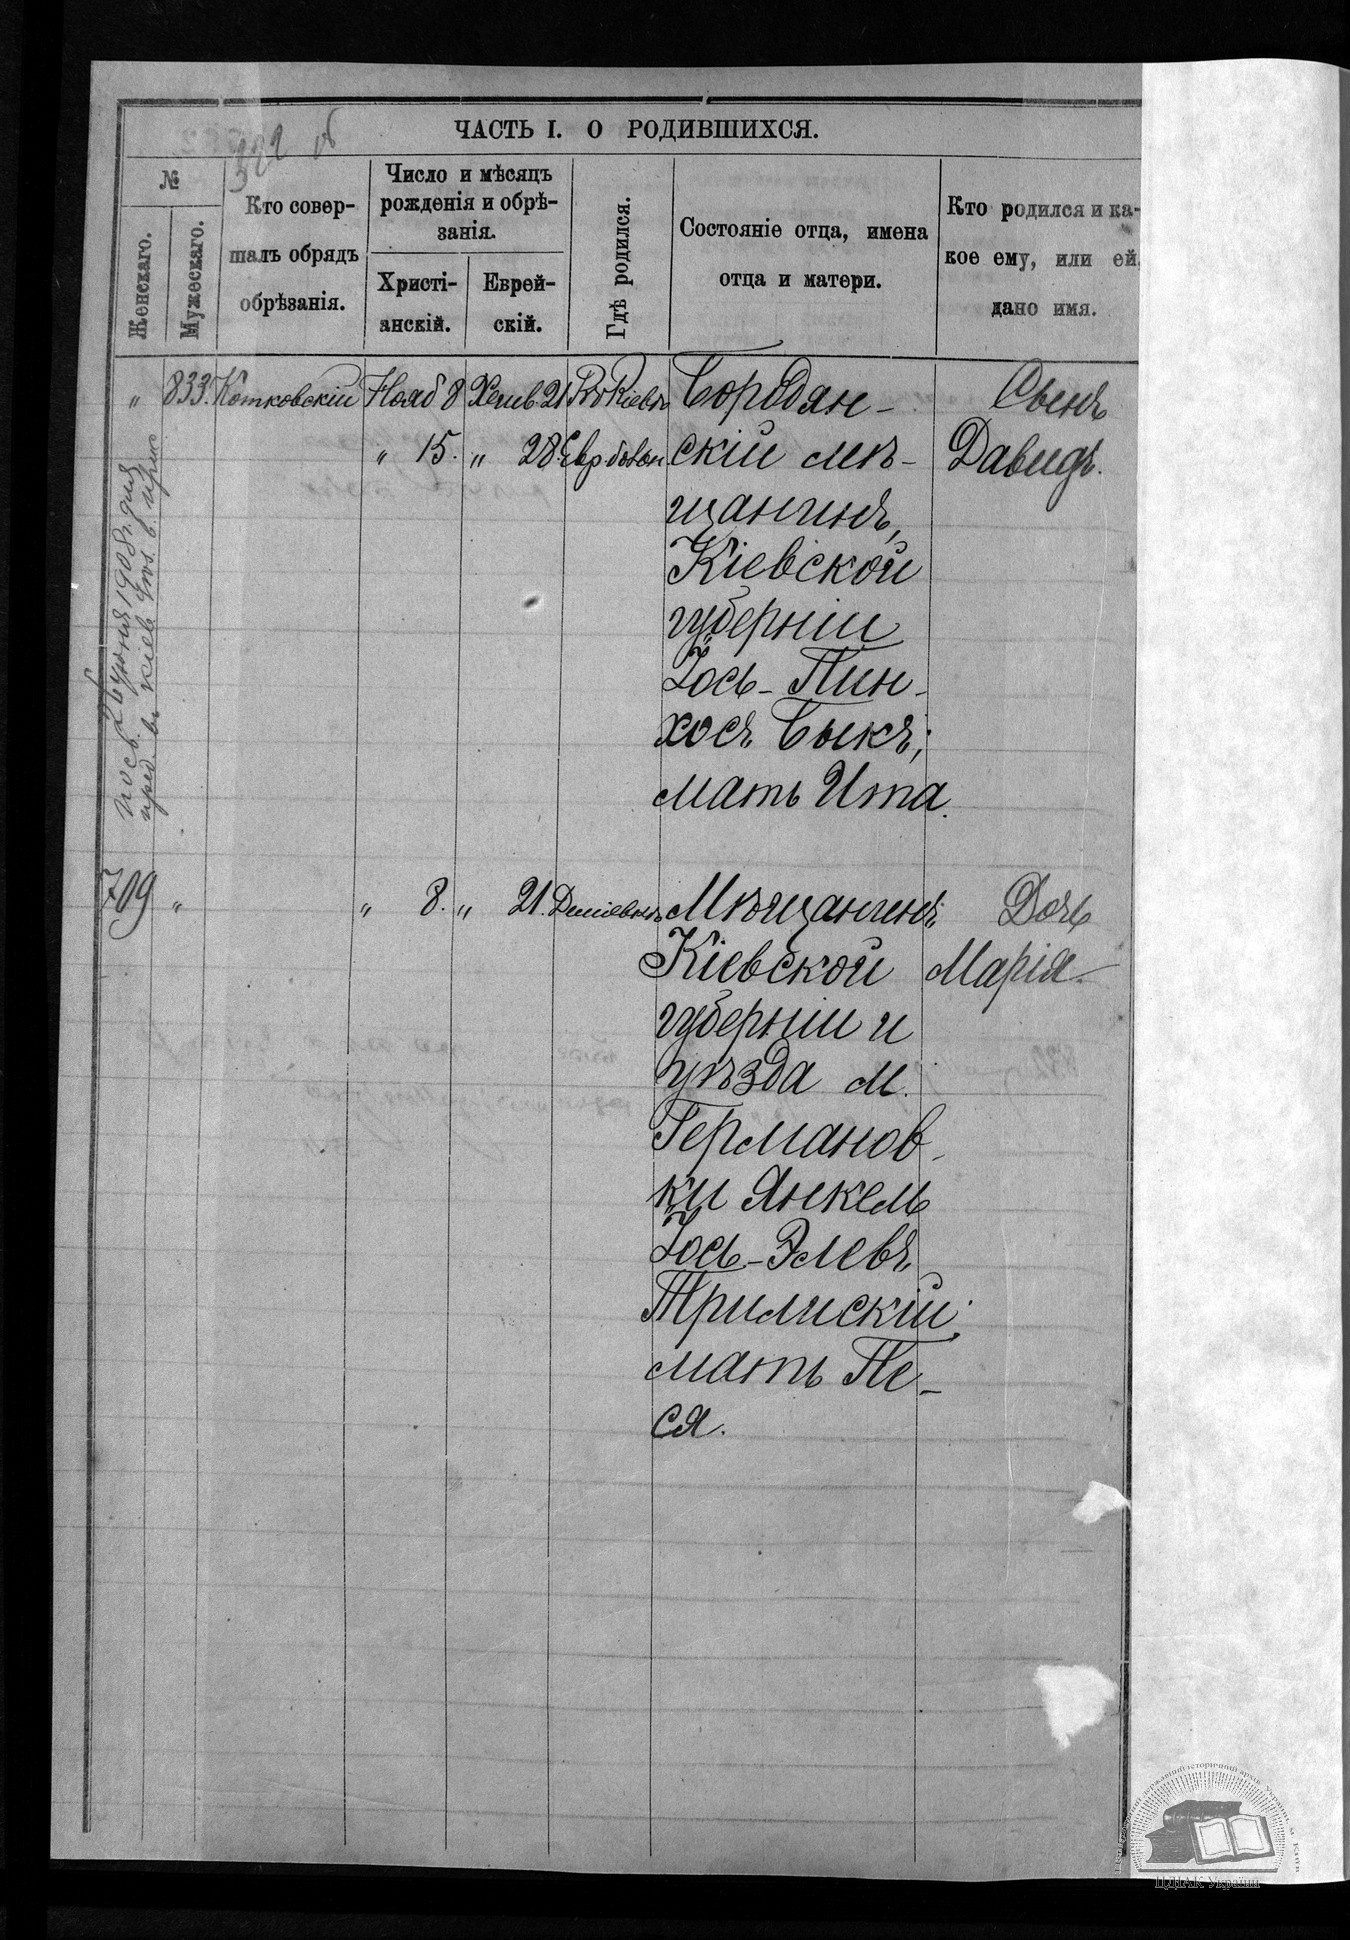 322 об
ЧАСТЬ I. О РОДИВШИХСЯ.
№
Женскаго.
Мужескаго.
Кто совер-
шалъ обрядъ
обрѣзанія.
Число и мѣсяцъ
рожденія и обрѣ-
занія.
Христі-
анскій.
Еврей-
скій.
Гдѣ родился.
Состояніе отца, имена
отца и матери.
Кто родился и ка-
кое ему, или ей
дано имя.
" 833. Котковскій Нояб 8 Хешв. 21 Въ Кіевѣ
" 15. " 28. Евр. больн.
Бородян-
скій мѣ-
щанинъ,
Кіевской
губерніи
Іось-Пин-
хосъ Быкъ;
мать Ита.
Сынъ
Давидъ.
1908 г. для
пред. въ Кіев
709 " " 8. " 21. Деміевкѣ
Мѣщанинъ
Кіевской
губерніи и
уѣзда м.
Германов-
ки Янкель
Іось-Элевъ
Трилискій;
мать Пе-
ся.
Дочь
Марія
ЦДІАК України